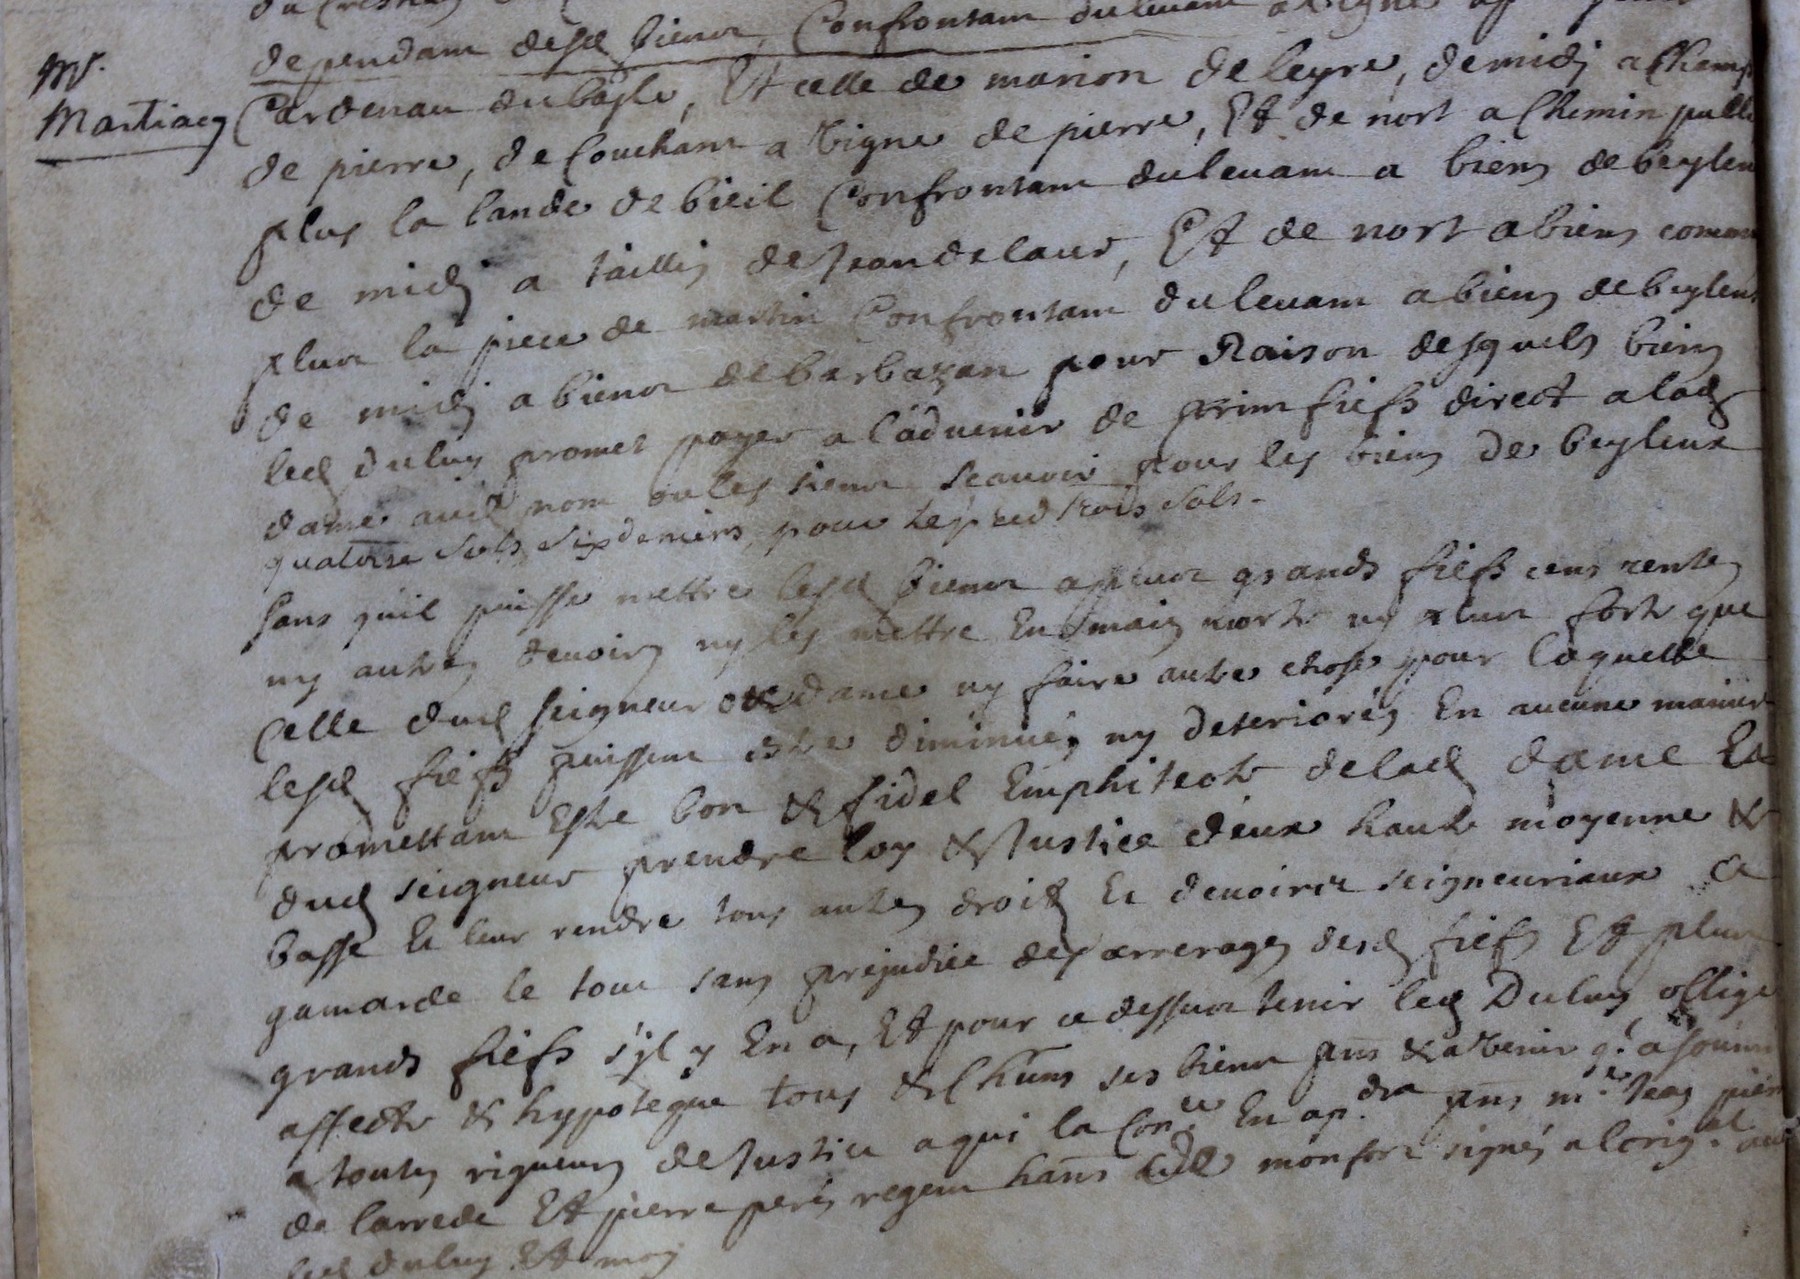 Mr.
Martiacq
dependam desd bienx, Confrontam dulevam a vigne
Cardenau dubasle, Et celle de marion deleyre, demidj a champ
de pierre, de Couchant a vigne de pierre, Et de nort a chemin public
plus la lande de bieil Confrontam dulevam a biens debeyleux
de midj a taillis deJeandelaur, Et de nort abiens comm
plux la piece de martin Confrontam dulevam abiens debeyleux
de midj abienx debarbazan pour Raison desquels biens
led duluy promet payer a l'advenir de prim fiefs direct alad
dame aud nom oules sienx scavoir pour les biens de beyleux
quatorse sols six deniers, pour trois sols.
sans qu'il puisse mettre lesd bienx aplux grands fiefs cens rentes
ny autres devoirs ny les mettre En main morte ny plux forte que
Celle dud seigneur dame ny faire autre chose pour laquelle
lesd fiefs puissent estre diminués ny deteriorés En aucune maniere
promettam Estre bon & fidel Emphiteote delad dame Et
dud seigneur prendre loy & Justice d'eux haute moyenne &
basse Et leur rendre tous autres droits Et devoirs seigneuriaux a
gamarde le tout sans prejudice des arrerages desd fiefs Et plux
grands fiefs s'jl y En a, Et pour ce dessux tenir led Duluy, obllige
affecte & hypoteque tous & Chuns ses bienx pns & avenir q.l a soumis
a toutes rigueurs deJustice aqui la Con.ce En ap.dra pns m.e Jean pierre
de larrede Et pierre peris regent hans monfort signés alorig.al avec
led duluy Et moy